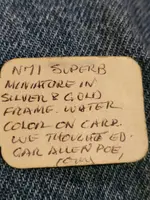 N71 SUPERB
MINIATURE IN
SILVER & GOLD
FRAME. WATER
COLOR ON CARD.
WE THOUGHT ED-
GAR ALLEN POE,